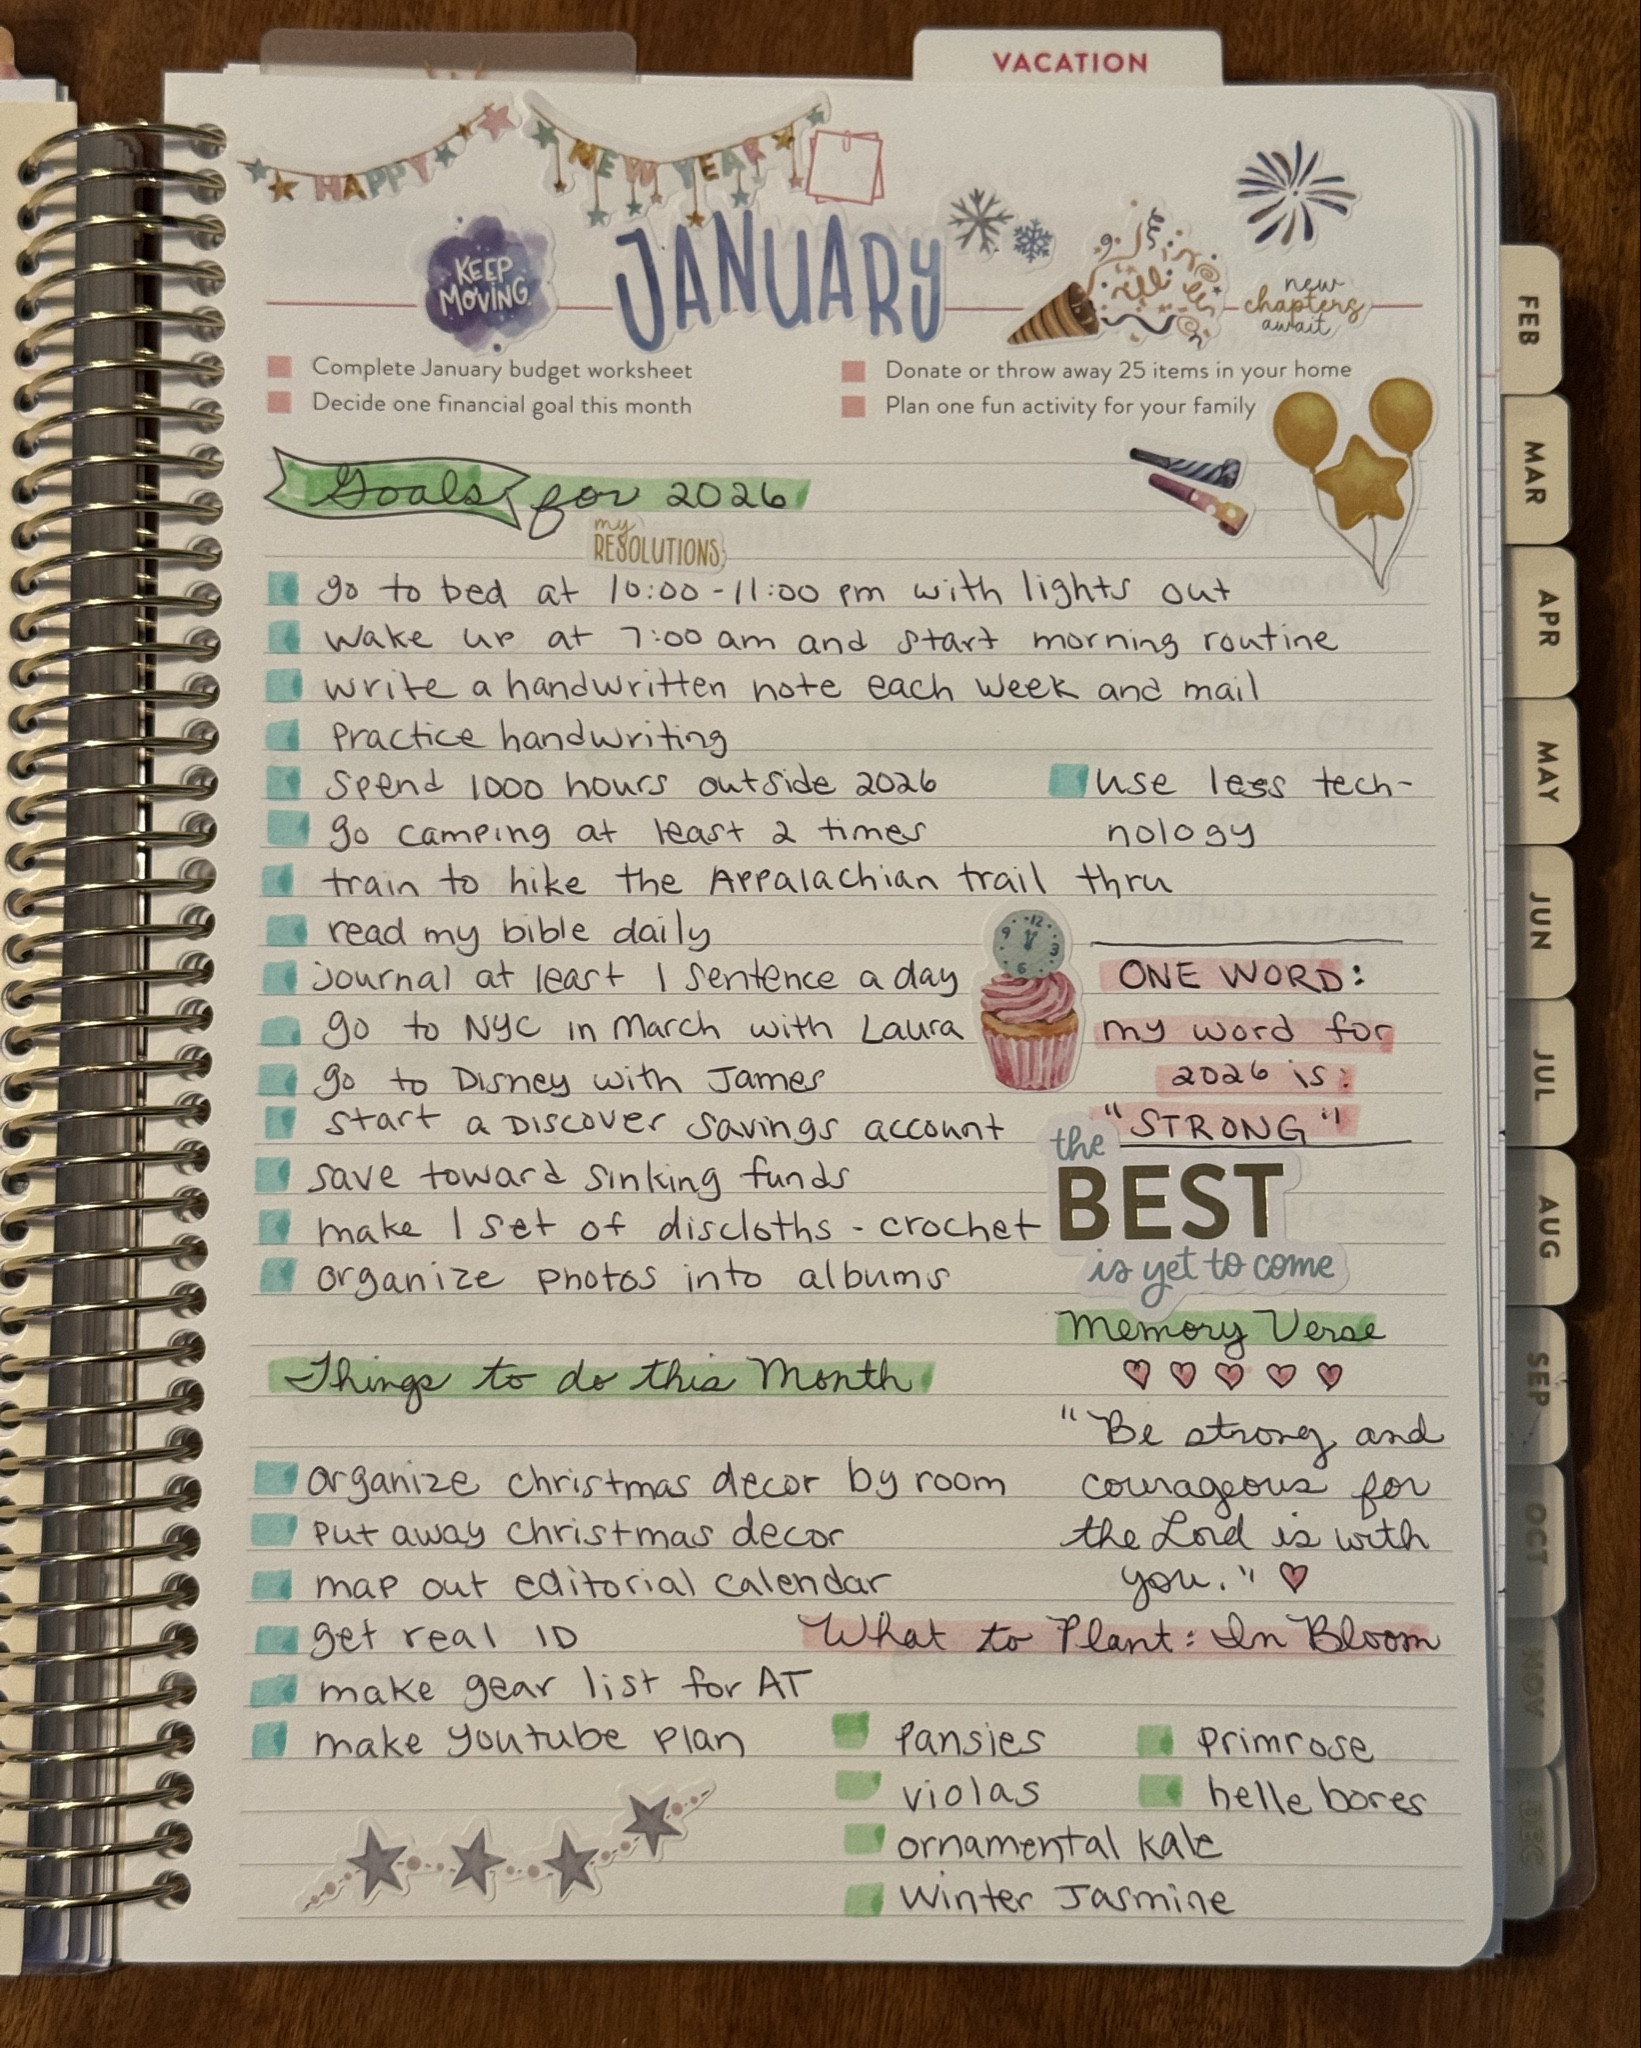 VACATION
HAPPY NEW YEAR
KEEP
MOVING
JANUARY
new
chapters
await
Complete January budget worksheet
Decide one financial goal this month
Donate or throw away 25 items in your home
Plan one fun activity for your family
Goals for 2026
my
RESOLUTIONS
go to bed at 10:00-11:00 pm with lights out
wake up at 7:00 am and start morning routine
write a handwritten note each week and mail
practice handwriting
spend 1000 hours outside 2026
go camping at least 2 times
use less tech-
nology
train to hike the Appalachian trail thru
read my bible daily
journal at least 1 sentence a day
go to NYC in March with Laura
go to Disney with James
start a Discover savings account
save toward sinking funds
make 1 set of discloths - crochet
organize photos into albums
12
3
6
9
ONE WORD:
my word for
2026 is:
"STRONG"
the
BEST
is yet to come
Memory Verse
"Be strong and
courageous for
the Lord is with
you."
Things to do this Month
organize christmas decor by room
put away christmas decor
map out editorial calendar
get real ID
make gear list for AT
make youtube plan
What to Plant: In Bloom
pansies
violas
ornamental kale
winter Jasmine
primrose
helle bores
FEB
MAR
APR
MAY
JUN
JUL
AUG
SEP
OCT
NOV
DEC